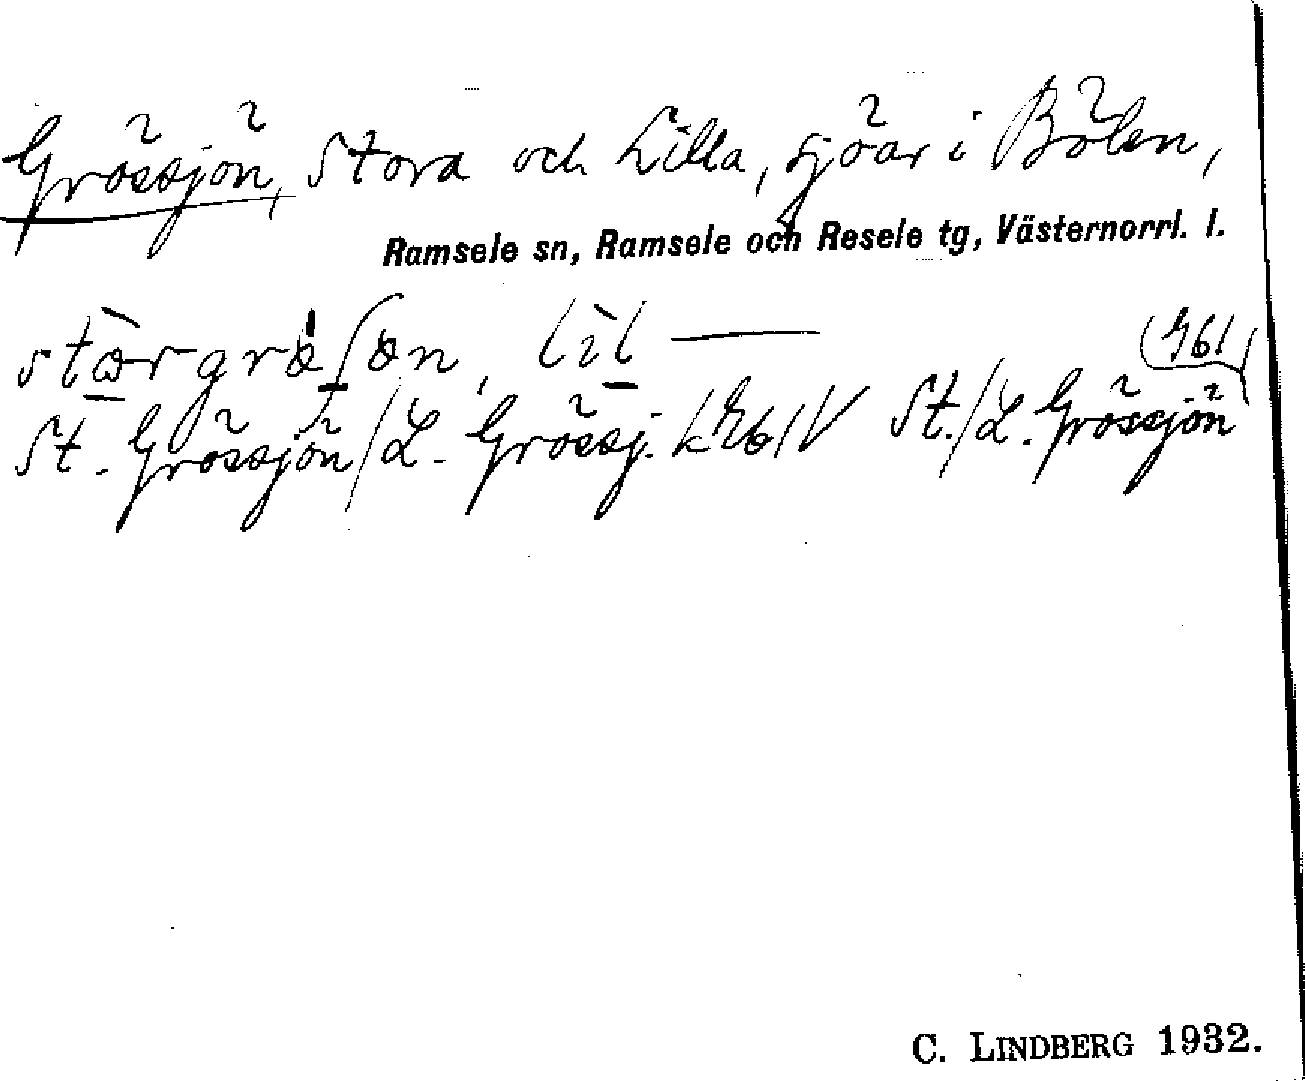 Grössjön, Stora och Lilla, sjöar i Bölen,
Ramsele sn, Ramsele och Resele tg, Västernorrl. l.
lil —
(Gbl
St. Grössjön/L. Grössj. St./L. Grössjön
C. LINDBERG 1932.